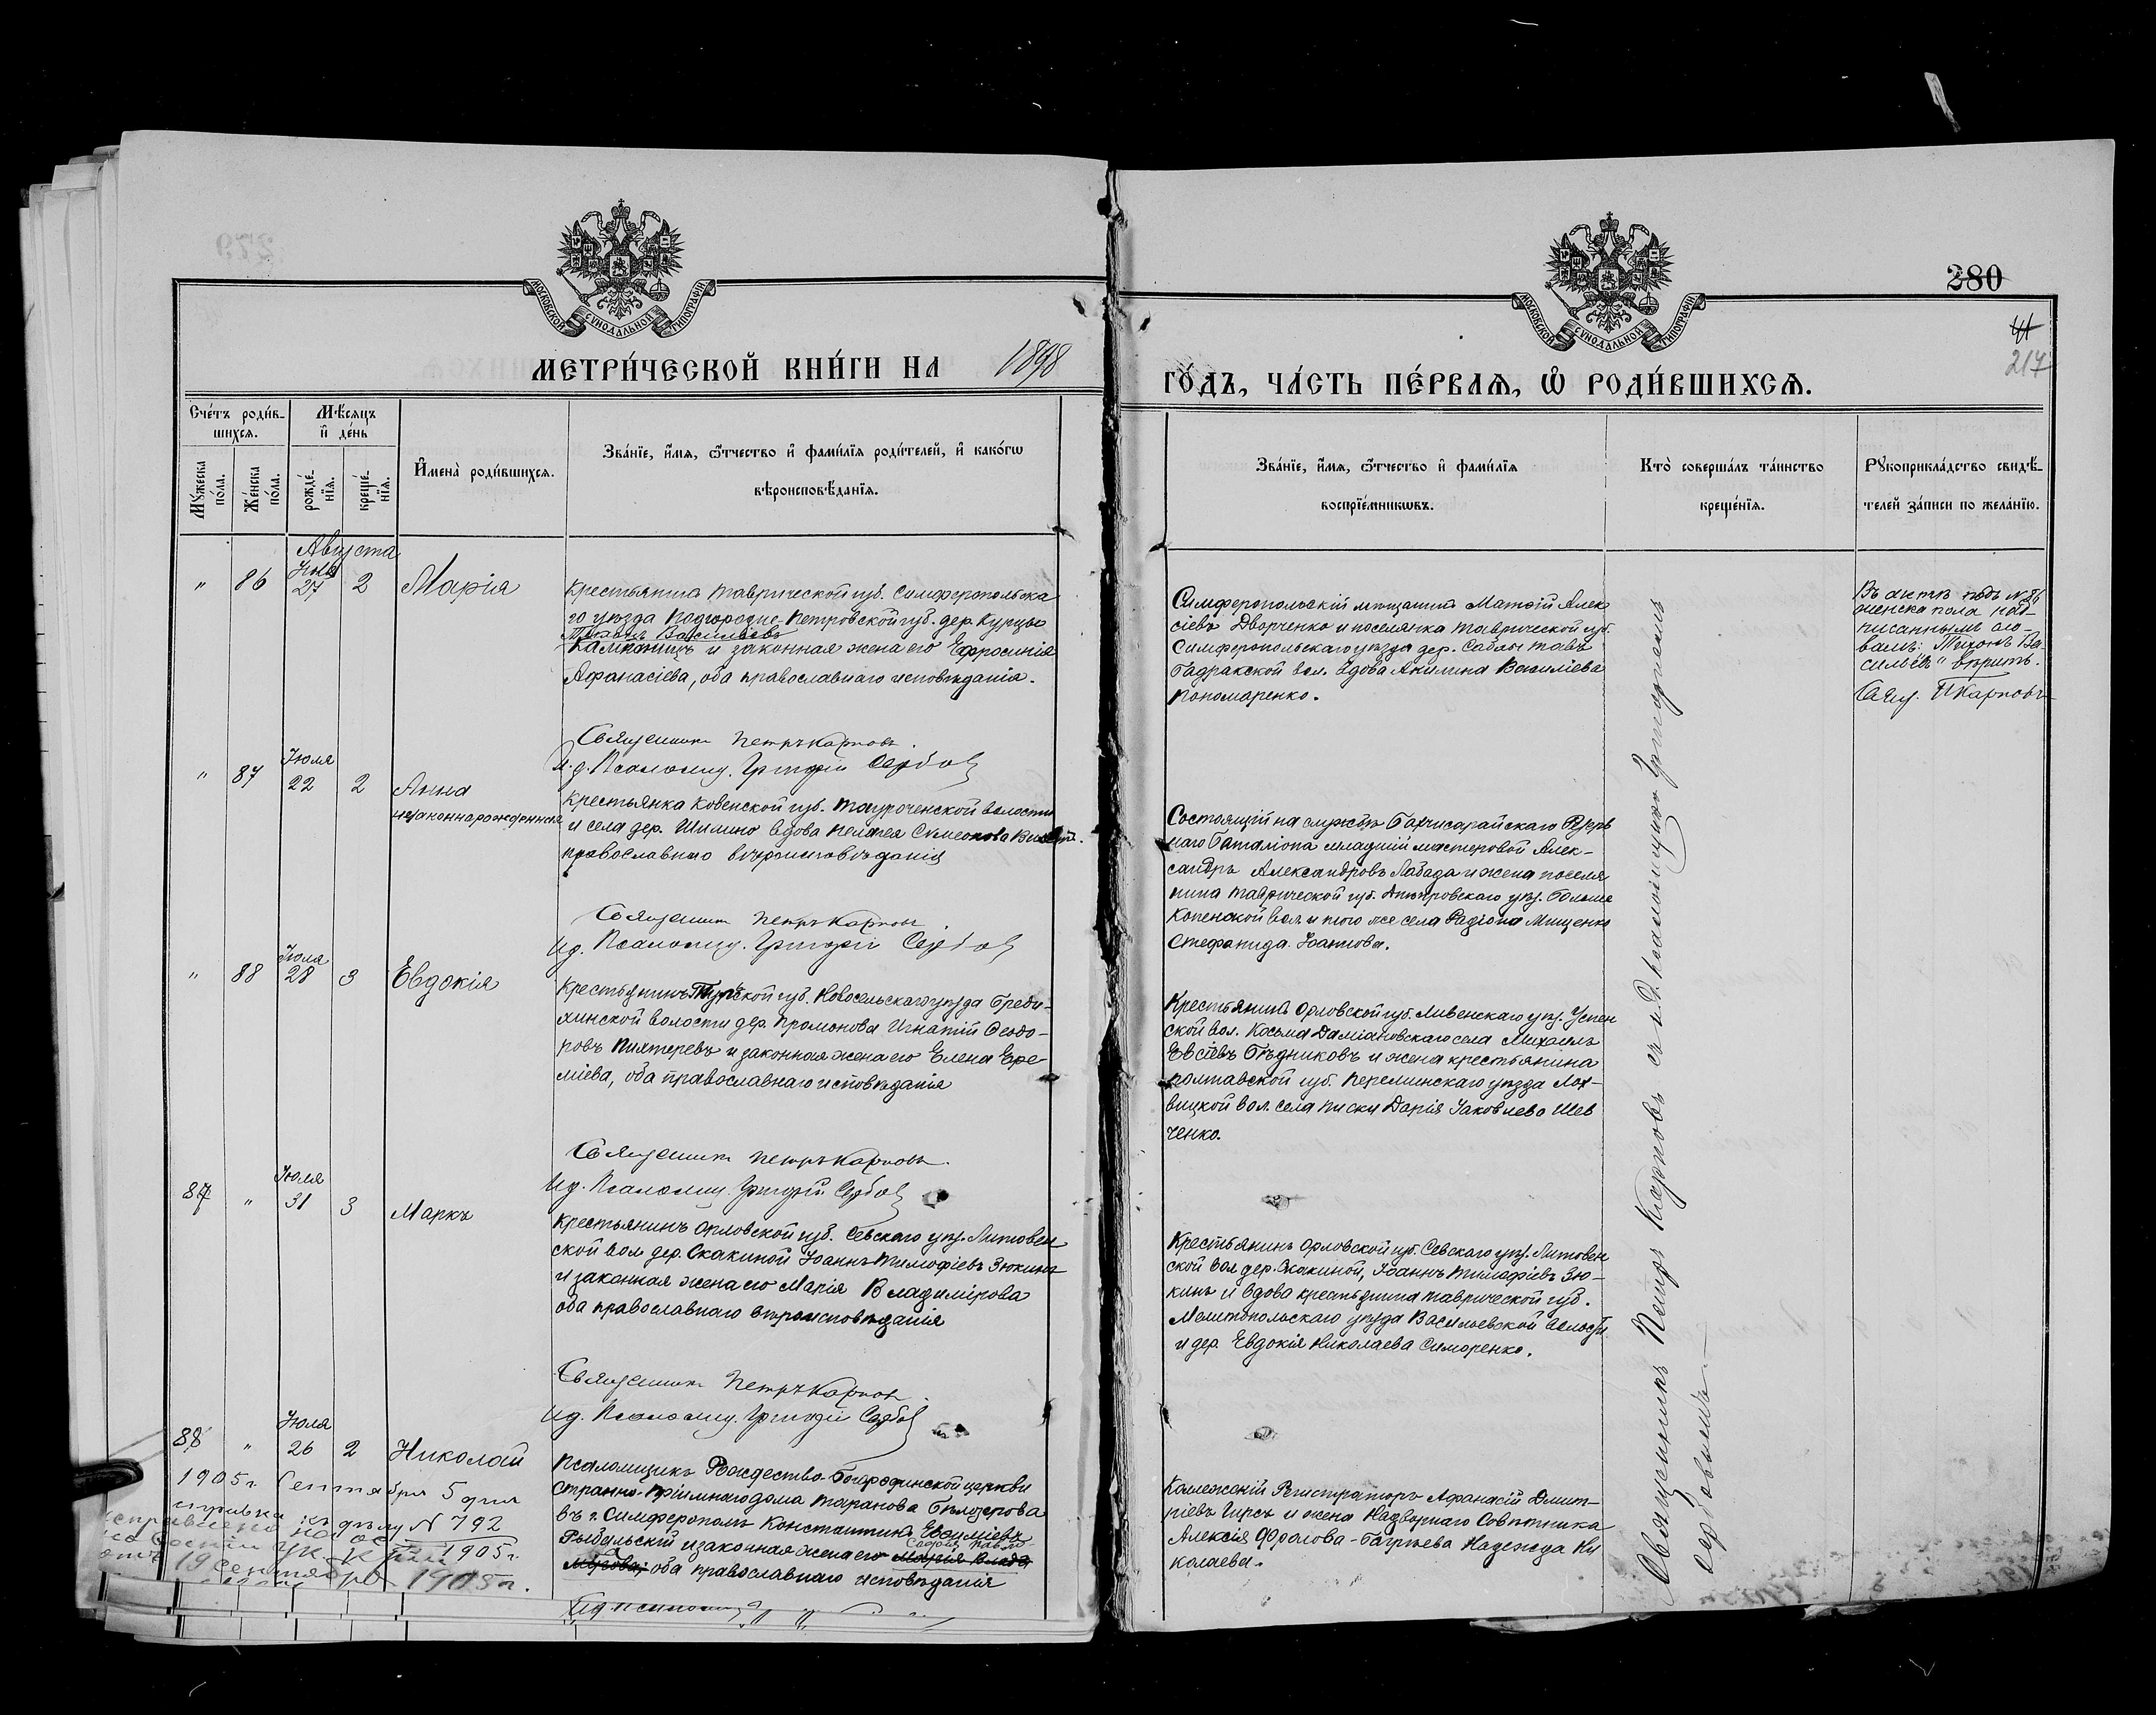 280
41
217
МОСКОВСКОЙ СѴНОДАЛЬНОЙ ТИПОГРАФІИ
МОСКОВСКОЙ СѴНОДАЛЬНОЙ ТИПОГРАФІИ
МЕТРИ́ЧЕСКОЙ КНИ́ГИ НА 1898
ГО́ДЪ, ЧА́СТЬ ПЕ́РВАѦ, Ѡ҆ РОДИ́ВШИХСѦ.
Сче́тъ роди́в-
шихсѧ.
Мѣ́сѧцъ
и҆ де́нь
Мꙋ́жеска
по́ла.
Же́нска
по́ла.
рожде́-
нїѧ.
креще́-
нїѧ.
И҆мена̀ роди́вшихсѧ.
Зва́нїе, и҆́мѧ, ѻ҆́тчество и҆ фами́лїѧ роди́телей, и҆ како́гѡ
вѣроисповѣ́данїѧ.
Зва́нїе, и҆́мѧ, ѻ҆́тчество и҆ фами́лїѧ
воспрїе́мникѡвъ.
Кто̀ соверша́лъ та́инство
креще́нїѧ.
Рꙋкоприкла́дство свидѣ́-
телей за́писи по жела́нїю.
Августа
" 86 Іюля 27 2 Марія
Крестьянина Таврической губ. Симферопольска
го уѣзда Подгородне-Петровской губ. дер. Курцы
Тихонъ Васильевъ
и законная жена его Ефросинія
Афанасіева, оба православнаго исповѣданія.
Священникъ Петръ Карповъ.
И.д. Псаломщ. Григорій Сербовъ
Симферопольскій мѣщанинъ Матѳій Алек
сіевъ Дворченко и поселянка Таврической губ.
Симферопольскаго уѣзда дер. Саблы тавъ
Бадракской вол. вдова Акилина Василіева
Пономаренко.
Въ актѣ подъ № 86
женска пола над-
писаннымъ сло-
вамъ: Тихонъ Ва-
сильевъ" вѣрить.
Свящ. П Карповъ
Іюля
" 87 22 2 Анна
незаконнорожденная
Крестьянка Ковенской губ. Тауроченской волости
и села дер. Шилино вдова Пелагея Симеонова
православнаго вѣроисповѣданія
Священникъ Петръ Карповъ.
И.д. Псаломщ. Григорій Сербовъ
Состоящій на службѣ Бахчисарайскаго Резерв
наго Баталіона младшій мастеровой Алек-
сандръ Александровъ Лабада и жена поселя
нина Таврической губ. Днѣпровскаго уѣз. Больше
Копенской вол. и того же села Радіона Мищенко
Стефанида Іоаннова.
Іюля
" 88 28 3 Евдокія
Крестьянинъ Тульской губ. Новосельскаго уѣзда Бреди-
хинской волости дер. Промонова Игнатій Ѳеодо-
ровъ Пихтеревъ и законная жена его Елена Ере-
міева, оба православнаго исповѣданія
Священникъ Петръ Карповъ.
И.д. Псаломщ. Григорій Сербовъ
Крестьянинъ Орловской губ. Ливенскаго уѣз. Успен
ской вол. Косьма Даміановскаго села Михаилъ
Евсіевъ Бѣдниковъ и жена крестьянина
Полтавской губ. уѣзда Лох-
вицкой вол. села Писки Дарія Іаковлева Шев
ченко.
Іюля
87 " 31 3 Маркъ
Крестьянинъ Орловской губ. Севскаго уѣз. Литовен
ской вол дер. Скакиной Іоаннъ Тимофіевъ Зюкинъ
и законная жена его Марія Владимірова
оба православнаго вѣроисповѣданія
Священникъ Петръ Карповъ.
И.д. Псаломщ. Григорій Сербовъ
Крестьянинъ Орловской губ. Севскаго уѣз. Литовен
ской вол дер. Скакиной, Іоаннъ Тимофіевъ Зю-
кинъ и вдова крестьянина Таврической губ.
Мелитопольскаго уѣзда Васильевской волости
и дер. Евдокія Николаева Симоренко.
Іюля
88 " 26 2 Николай
Псаломщикъ Рождество-Богородичной церкви
Странно-пріимнаго дома Таранова Бѣлозерова
въ г. Симферополѣ Константинъ Евѳиміевъ
и законная жена его Марія Влади
Софія
мірова; оба православнаго исповѣданія
Коллежскій Регистраторъ Афанасій Димит-
ріевъ Гирсъ и жена Надворнаго Совѣтника
Алексія Фролова-Багрѣева Надежда Ни
колаева.
1905 г. Сентября 5 дня
справка къ дѣлу № 792
1905 г.
19 сентября 1905 г.
Священникъ Петръ Карповъ съ и. д. псаломщика Григоріемъ
Сербовымъ.